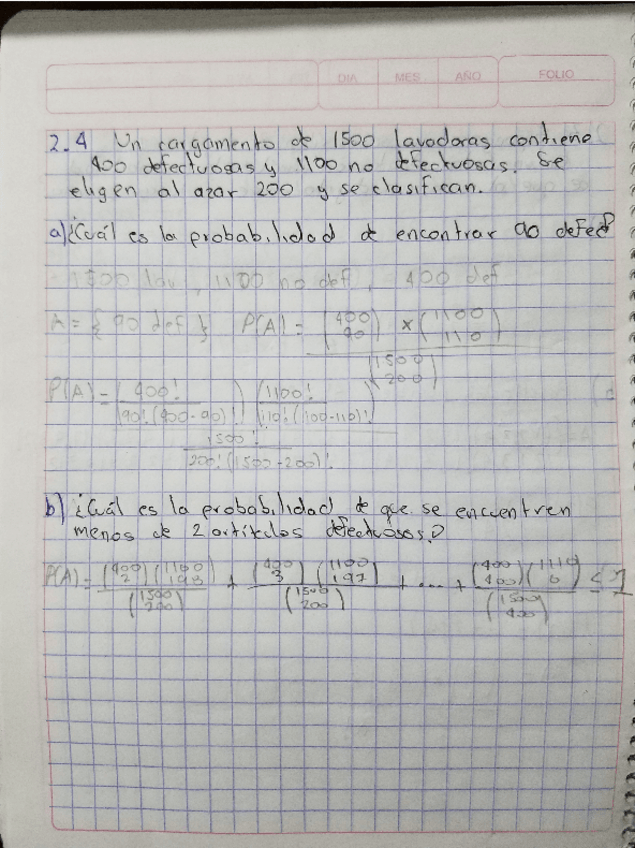 DIA MES AÑO FOLIO
2.4 Un cargamento de 1500 lavadoras contiene
400 defectuosas y 1100 no defectuosas. Se
eligen al azar 200 y se clasifican.
a) ¿Cuál es la probabilidad de encontrar 90 defec?
1500 lav, 1100 no def, 400 def
A = { 90 def } P(A) = (400 90) × (1100 110)
(1500 200)
P(A) = (400! / 90!(400-90)!) (1100! / 110!(1100-110)!)
1500!
200!(1500-200)!
b) ¿Cuál es la probabilidad de que se encuentren
menos de 2 artículos defectuosos?
P(A) = (400 2)(1100 198) / (1500 200) + (400 3)(1100 197) / (1500 200) + ... + (400 400)(1110 0) / (1500 400) ≤ 1